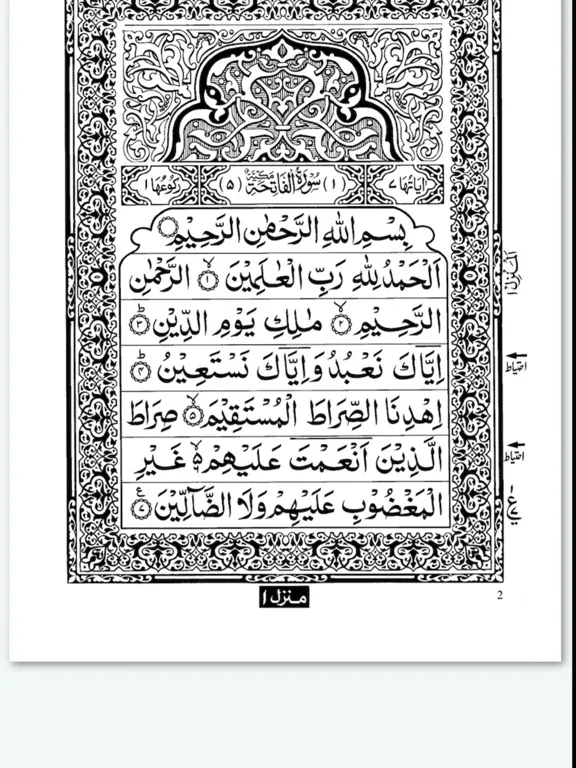 اٰیَاتُهَا ٧ (١) سُوْرَةُ الْفَاتِحَةِ مَكِّيَّةٌ (٥) رُكُوْعُهَا ١
بِسْمِ اللّٰهِ الرَّحْمٰنِ الرَّحِيْمِ
اَلْحَمْدُ لِلّٰهِ رَبِّ الْعٰلَمِيْنَ ۙ﴿١﴾ الرَّحْمٰنِ
الرَّحِيْمِ ۙ﴿٢﴾ مٰلِكِ يَوْمِ الدِّيْنِ ؕ﴿٣﴾
اِيَّاكَ نَعْبُدُ وَاِيَّاكَ نَسْتَعِيْنُ ؕ﴿٤﴾
اِهْدِنَا الصِّرَاطَ الْمُسْتَقِيْمَ ۙ﴿٥﴾ صِرَاطَ
الَّذِيْنَ اَنْعَمْتَ عَلَيْهِمْ ۙ۬ۙ غَيْرِ
الْمَغْضُوْبِ عَلَيْهِمْ وَلَا الضَّآلِّيْنَ ﴿٧﴾ ع
اَلْمَنْزِل ١
احتیاط
احتیاط
منزل ١
2